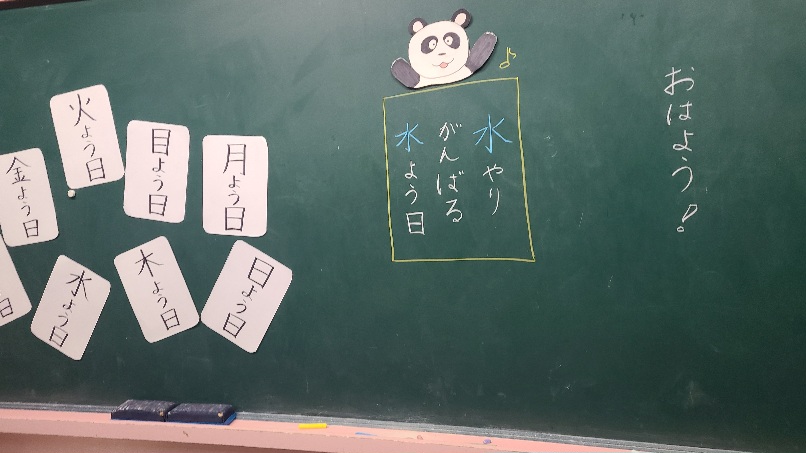 おはよう!
水やり
がんばる
水よう日
月よう日
目よう日
火よう日
金よう日
日よう日
木よう日
水よう日
日